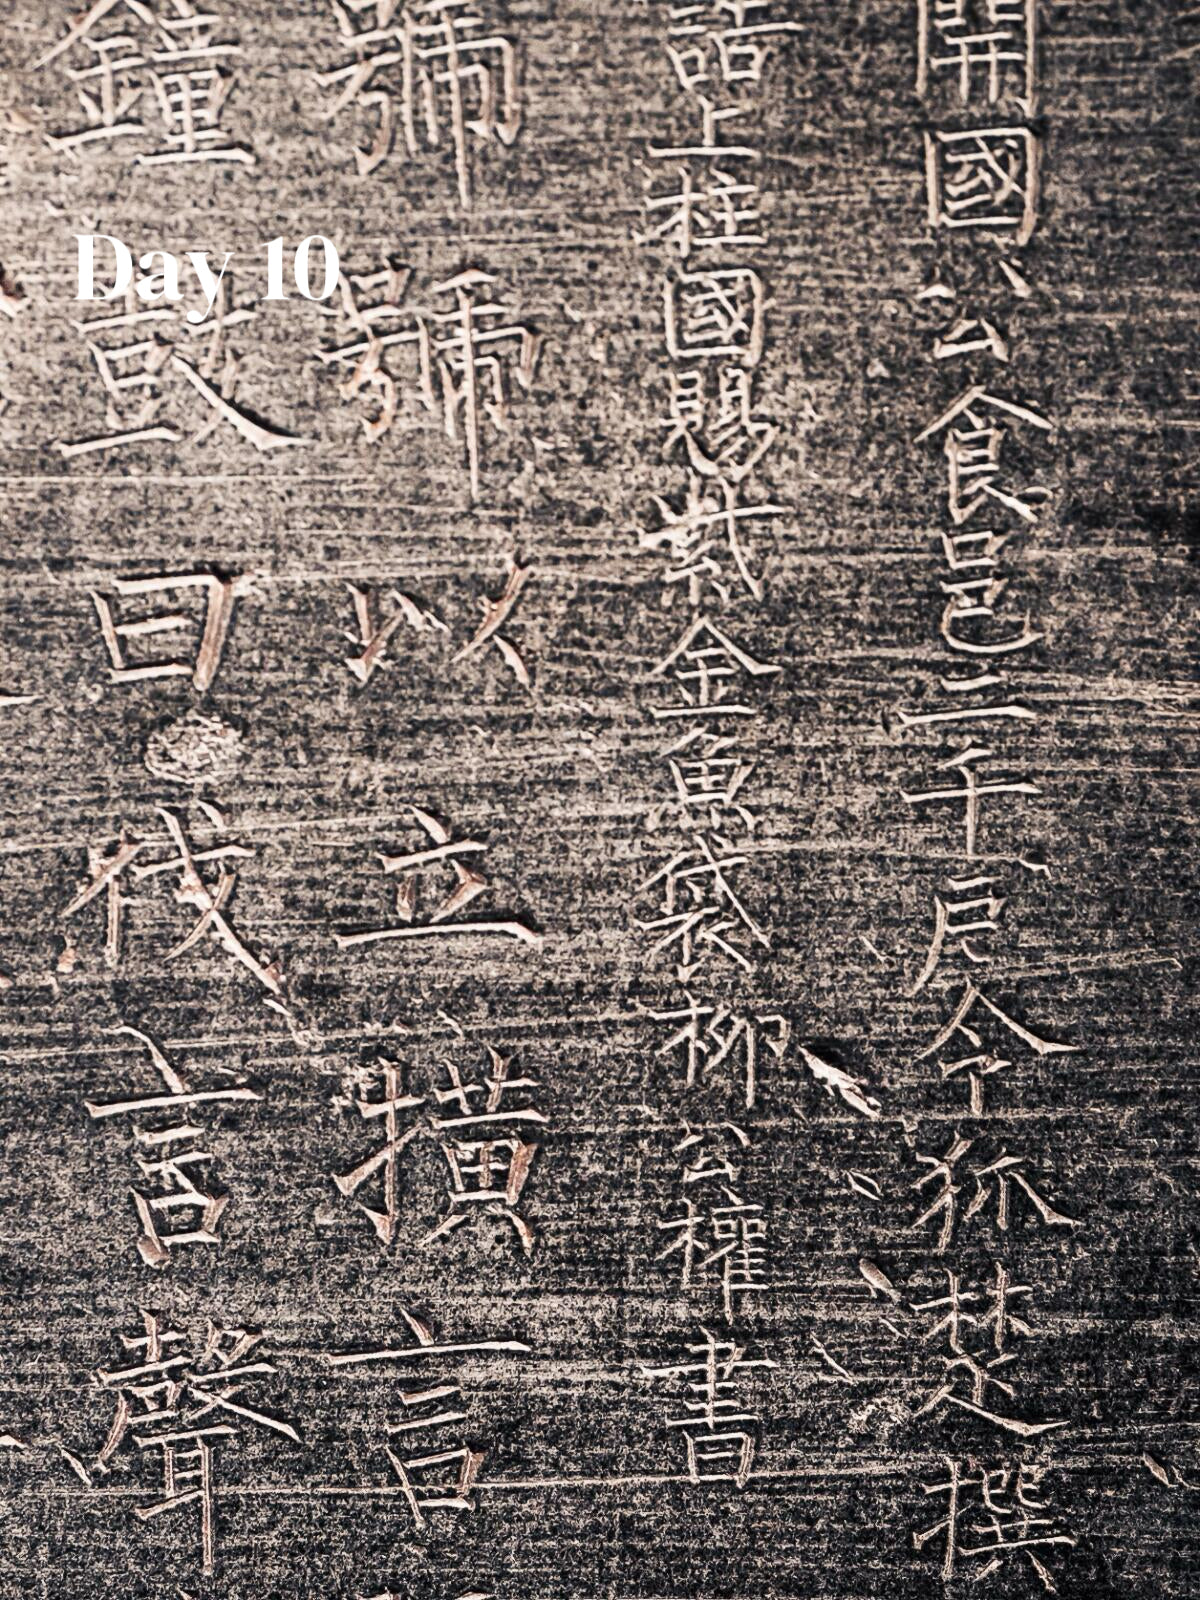 Day 10
開國公食邑二千戶令狐楚撰
誥上柱國賜紫金魚袋柳公權書
號號以立撗言
鐘鼓曰伐言聲